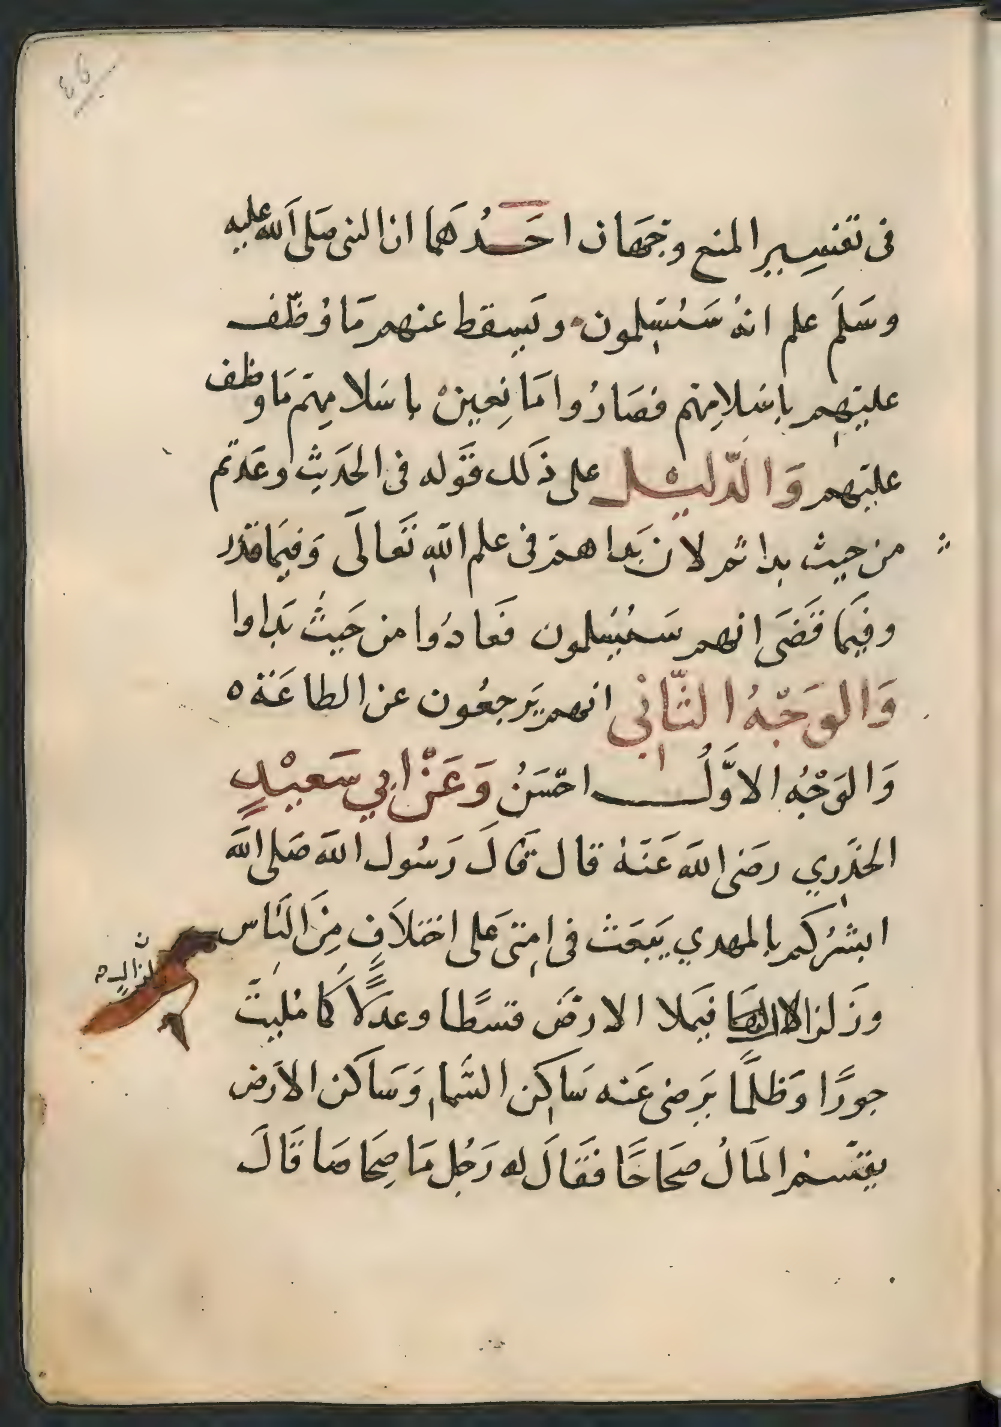 ٤٦
فى تفسير المنع وجهان احدهما ان النبى صلى الله عليه
وسلم علم انهم سيسلمون ويسقط عنهم ما وظف
عليهم باسلامهم فصاروا مانعين باسلامهم ما وظف
عليهم والدليل على ذلك قوله فى الحديث وعدتم
من حيث بداتم لان بداهم فى علم الله تعالى وفيما قدر
وفيما قضى انهم سيسلمون فعادوا من حيث بداوا
والوجه الثاني انهم يرجعون عن الطاعة ه
والوجه الاول احسن وعن ابي سعيد
الخدري رضى الله عنه قال قال رسول الله صلى الله
ابشركم بالمهدي يبعث فى امتى على اختلاف من الناس
وزلزال فيملا الارض قسطا وعدلا كما مليت
جورا وظلما يرضى عنه ساكن السما وساكن الارض
يقسم المال صحاحا فقال له رجل ما صحاحا قال